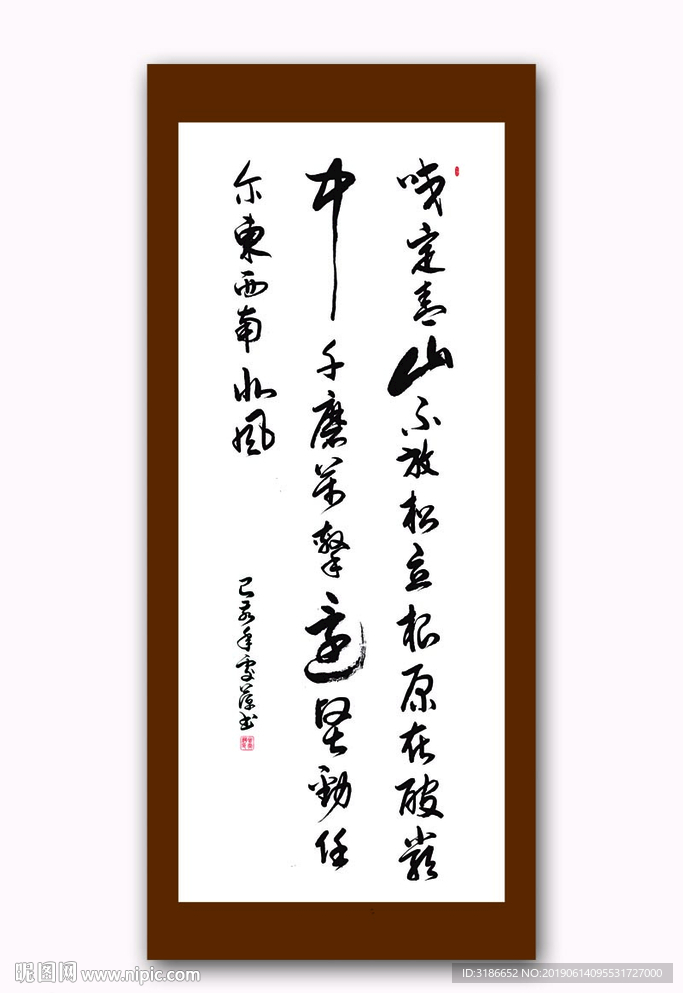 咬定青山不放松立根原在破巖
中千磨萬擊還堅勁任
尔東西南北風
己亥年
书
昵图网 www.nipic.com
ID:3186652 NO:20190614095531727000